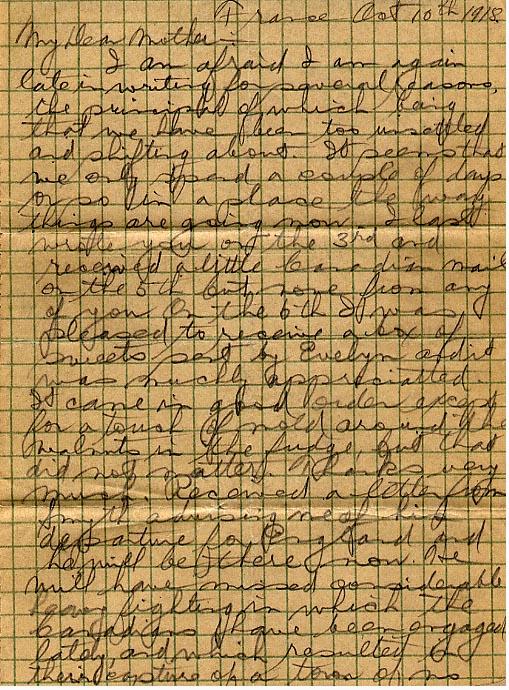 France Oct 10th 1918
My Dear Mother:-
I am afraid I am again
late in writing for several reasons,
the principal of which being
that we have been too unsettled
and shifting about. It seems that
we only spend a couple of days
or so in a place the way
things are going now. I last
wrote you on the 3rd and
received a little Canadian mail
on the 5th but none from any
of you. On the 6th I was
pleased to receive a box of
sweets sent by Evelyn and it
was much appreciated.
It came in good order except
for a touch of mold around the
walnuts in the fudge, but that
did not matter. Thanks very
much. Received a letter from
Smyth advising me of his
departure for England and
he will be there now. He
will have missed considerable
heavy fighting in which the
Canadians have been engaged
lately and which resulted in
their capture of a town of no